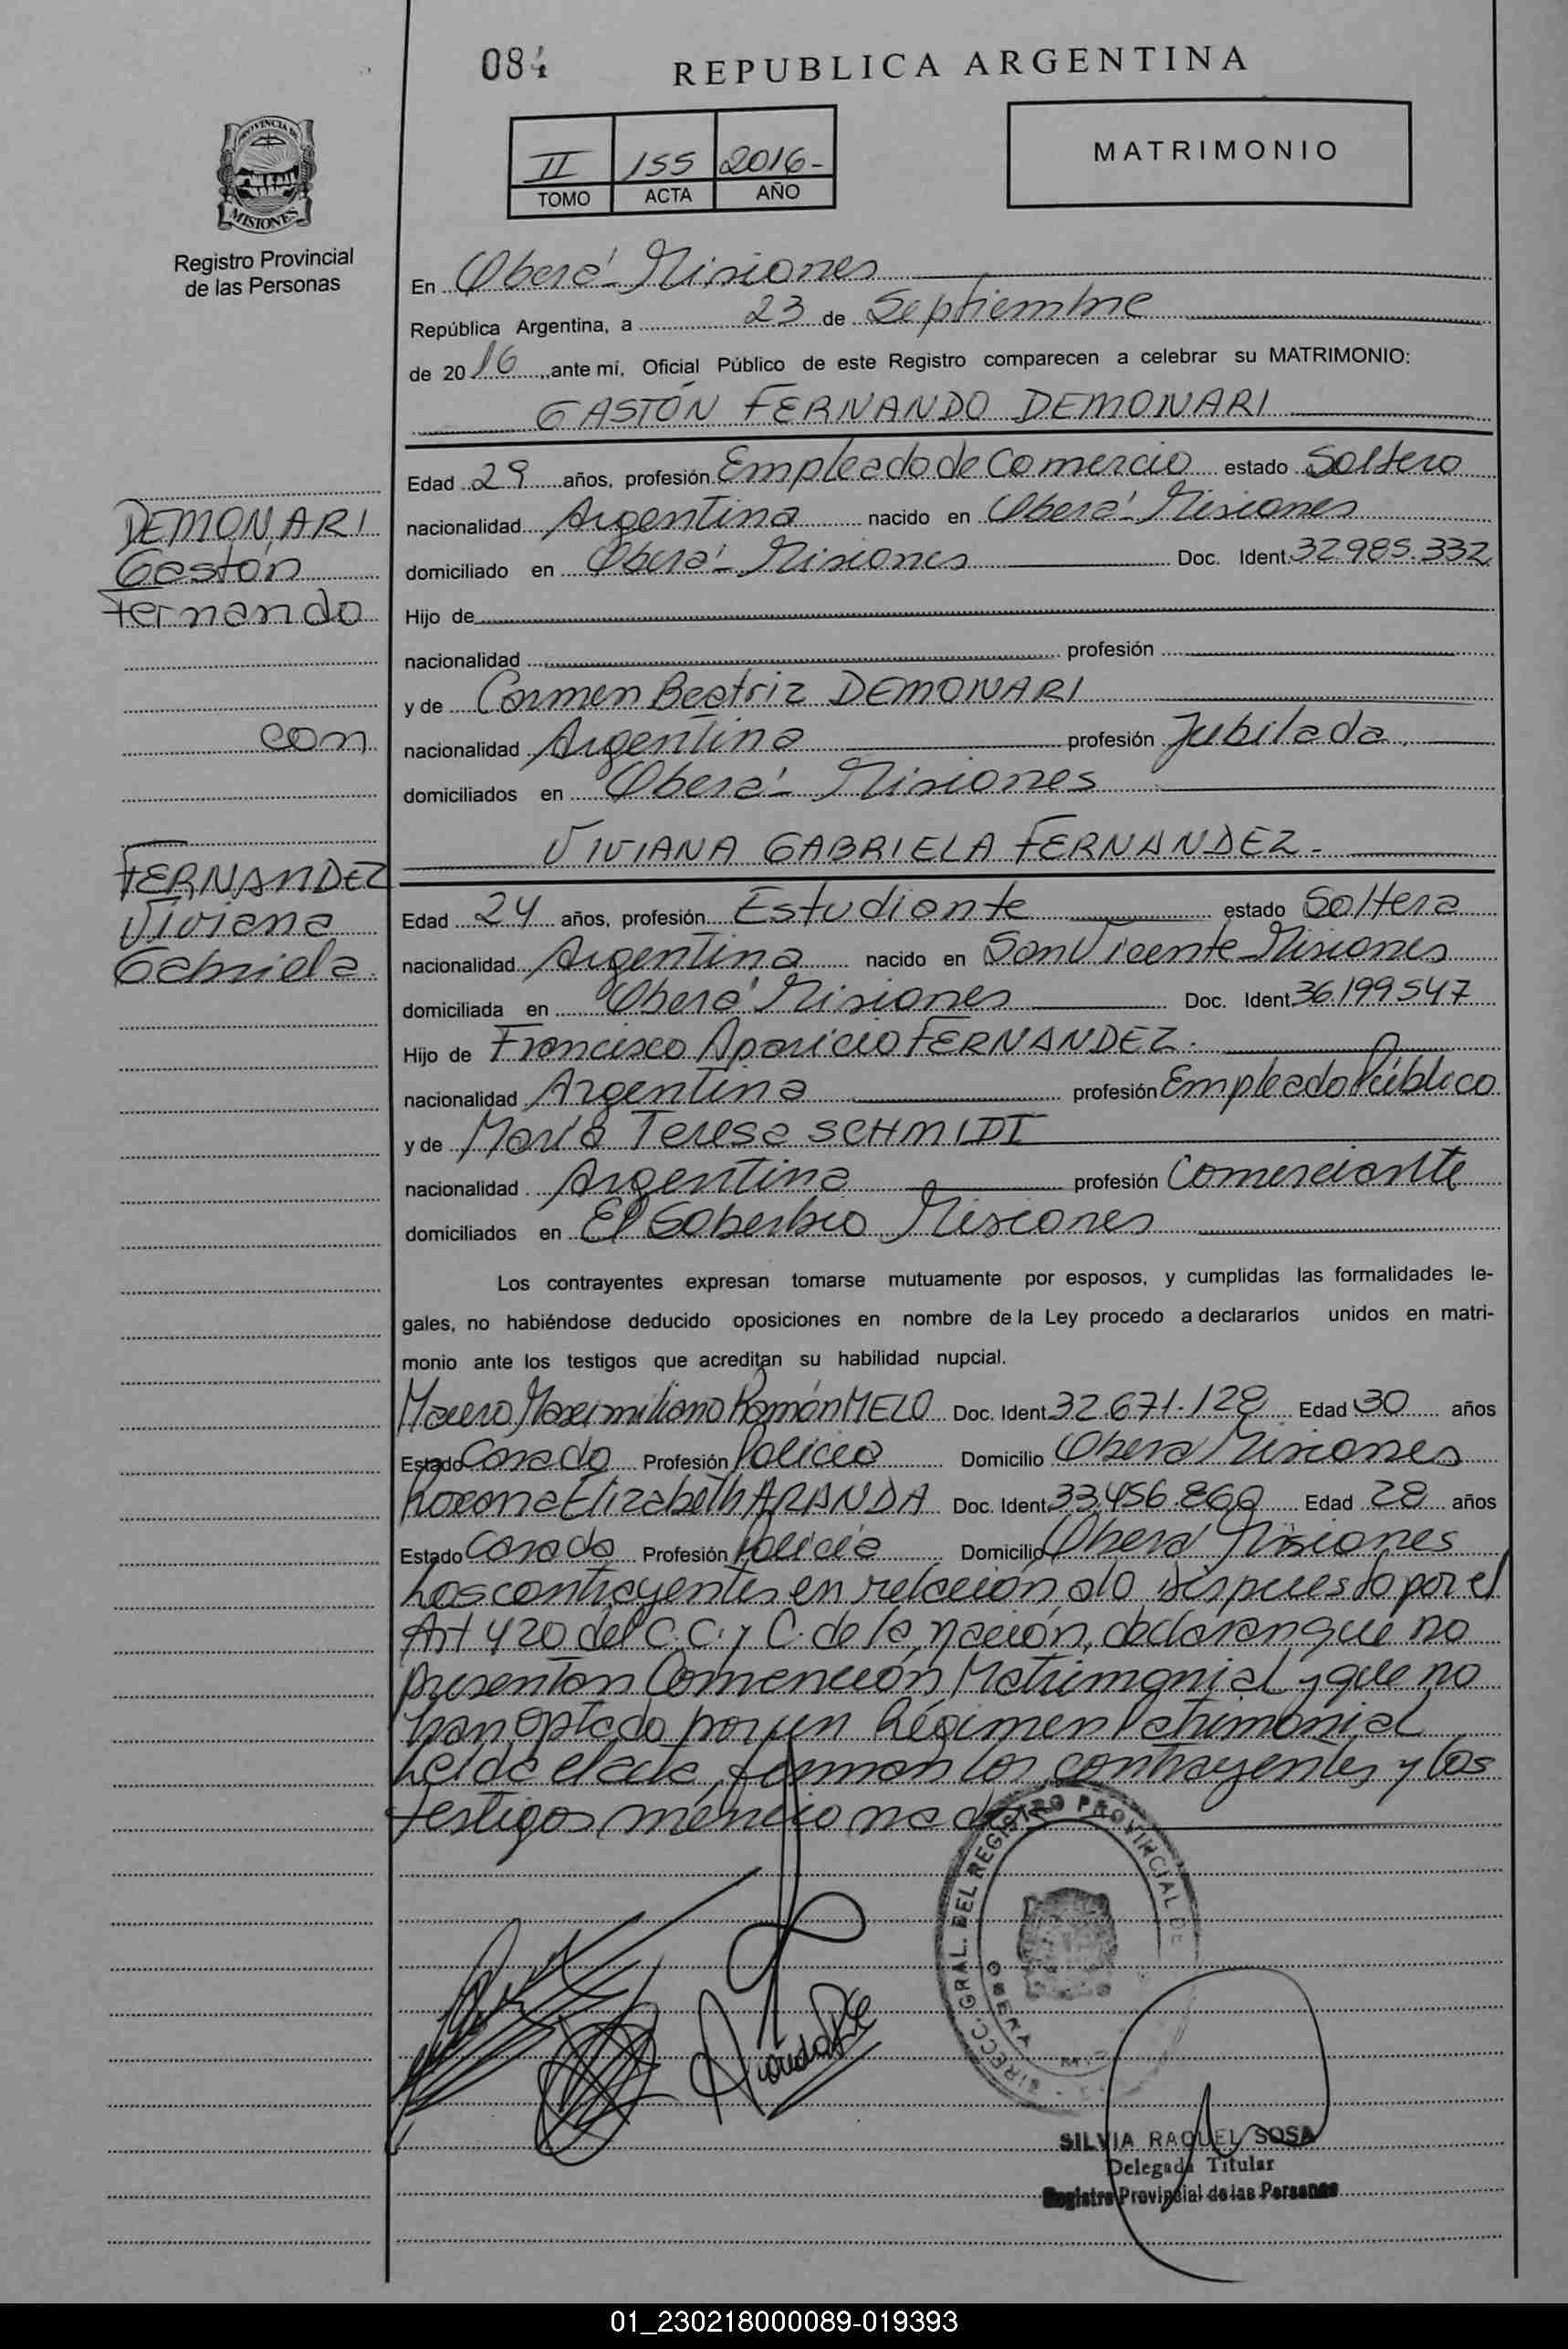 084
REPUBLICA ARGENTINA
II 155 2016-
TOMO ACTA AÑO
MATRIMONIO
PROVINCIA DE
MISIONES
Registro Provincial
de las Personas
En Oberá - Misiones
República Argentina, a 23 de Septiembre
de 2016, ante mí, Oficial Público de este Registro comparecen a celebrar su MATRIMONIO:
GASTÓN FERNANDO DEMONARI
Edad 29 años, profesión Empleado de Comercio estado Soltero
nacionalidad Argentina nacido en Oberá - Misiones
domiciliado en Oberá - Misiones Doc. Ident. 32.985.332
Hijo de
nacionalidad profesión
y de Carmen Beatriz DEMONARI
nacionalidad Argentina profesión Jubilada.
domiciliados en Oberá - Misiones
DEMONARI
Gastón
Fernando
con
FERNANDEZ
Viviana
Gabriela
VIVIANA GABRIELA FERNANDEZ.-
Edad 24 años, profesión Estudiante estado Soltera
nacionalidad Argentina nacido en San Vicente Misiones
domiciliada en Oberá Misiones Doc. Ident. 36.199.547
Hijo de Francisco Aparicio FERNANDEZ.
nacionalidad Argentina profesión Empleado Público
y de María Teresa SCHMIDT
nacionalidad Argentina profesión Comerciante
domiciliados en El Soberbio Misiones
Los contrayentes expresan tomarse mutuamente por esposos, y cumplidas las formalidades le-
gales, no habiéndose deducido oposiciones en nombre de la Ley procedo a declararlos unidos en matri-
monio ante los testigos que acreditan su habilidad nupcial.
Mauro Maximiliano Ramón MELO Doc. Ident. 32.671.128 Edad 30 años
Estado Casado Profesión Policía Domicilio Oberá Misiones
Roxana Elizabeth ARANDA Doc. Ident. 33.456.860 Edad 28 años
Estado Casada Profesión Policía Domicilio Oberá Misiones
Los contrayentes en relación a lo dispuesto por el
Art 420 del C.C. y C. de la nación, declaran que no
presentan Convención Matrimonial y que no
han optado por un Régimen Patrimonial
Leída el acta, firman los contrayentes y los
testigos mencionados
DIRECC. GRAL. DEL REGISTRO PROVINCIAL DE
OBERA
SILVIA RAQUEL SOSA
Delegada Titular
Registro Provincial de las Personas
01_230218000089-019393